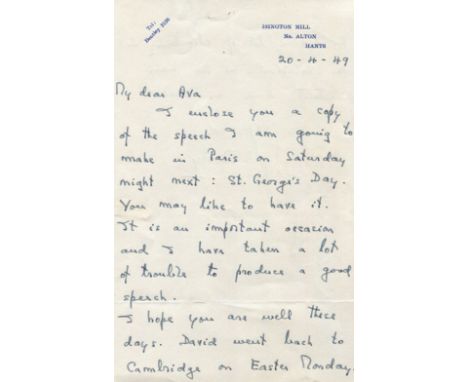 Tel:
Bentley 3126
ISINGTON MILL
Nr. ALTON
HANTS
20-4-49
My dear Ava
I enclose you a copy
of the speech I am going to
make in Paris on Saturday
night next: St. George's Day.
You may like to have it.
It is an important occasion
and I have taken a lot
of trouble to produce a good
speech.
I hope you are well these
days. David went back to
Cambridge on Easter Monday.